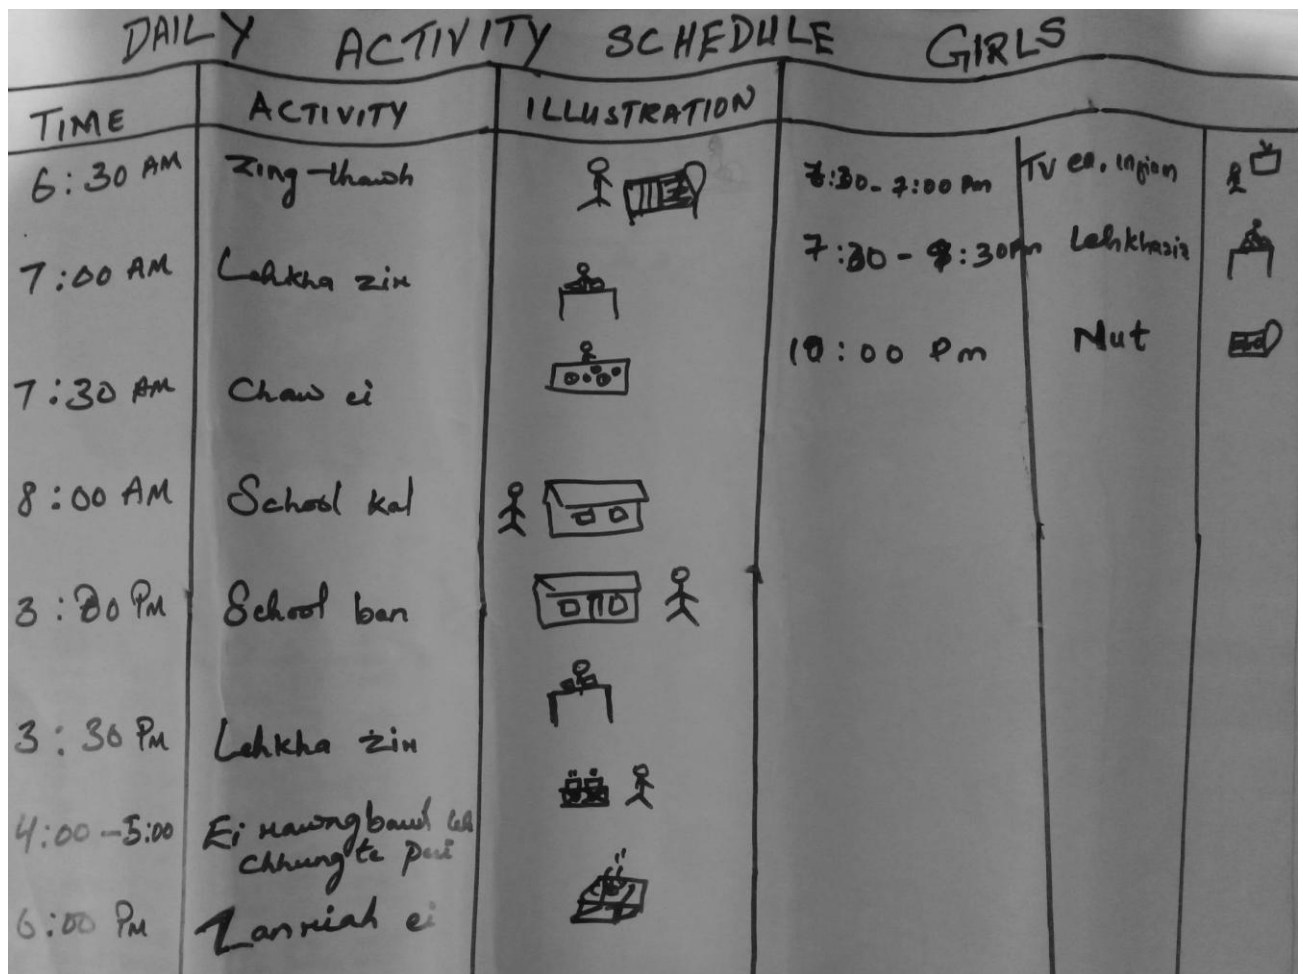 DAILY ACTIVITY SCHEDULE GIRLS
TIME ACTIVITY ILLUSTRATION
6:30 AM Zing-thawh
7:00 AM Lehkha zir
7:30 AM Chaw ei
8:00 AM School kal
3:00 PM School ban
3:30 PM Lehkha zir
4:00-5:00 Ei rawngbawl leh
chhungte pui
6:00 PM Zanriah ei
6:30-7:00 Pm TV en, infiam
7:30-8:30Pm Lehkhazir
10:00 Pm Mut